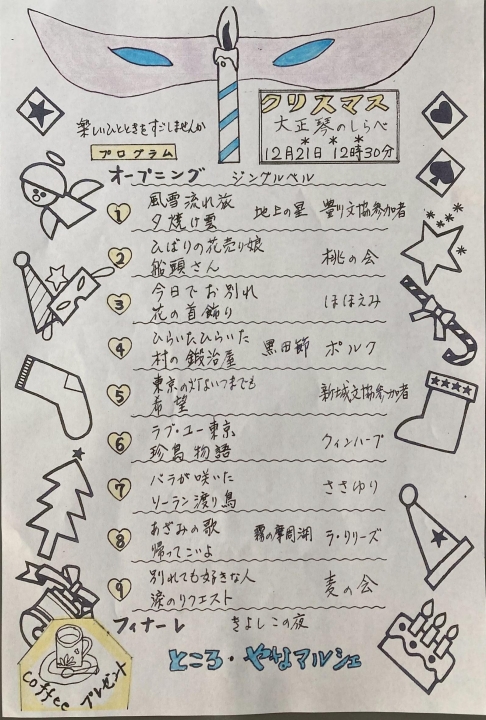 クリスマス
大正琴のしらべ
12月21日 12時30分
楽しいひとときをすごしませんか
プログラム
オープニング ジングルベル
1 風雪流れ旅
夕焼け雲 地上の星 豊川文協参加者
2 ひばりの花売り娘
船頭さん 桃の会
3 今日でお別れ
花の首飾り ほほえみ
4 ひらいたひらいた
村の鍛冶屋 黒田節 ポルク
5 東京の灯よいつまでも
希望 新城文協参加者
6 ラブ・ユー東京
珍島物語 クィンハープ
7 バラが咲いた
ソーラン渡り鳥 ささゆり
8 あざみの歌 霧の摩周湖 ラ・リリーズ
帰ってこいよ
9 別れても好きな人
涙のリクエスト 麦の会
フィナーレ きよしこの夜
ところ・やなマルシェ
coffee プレゼント